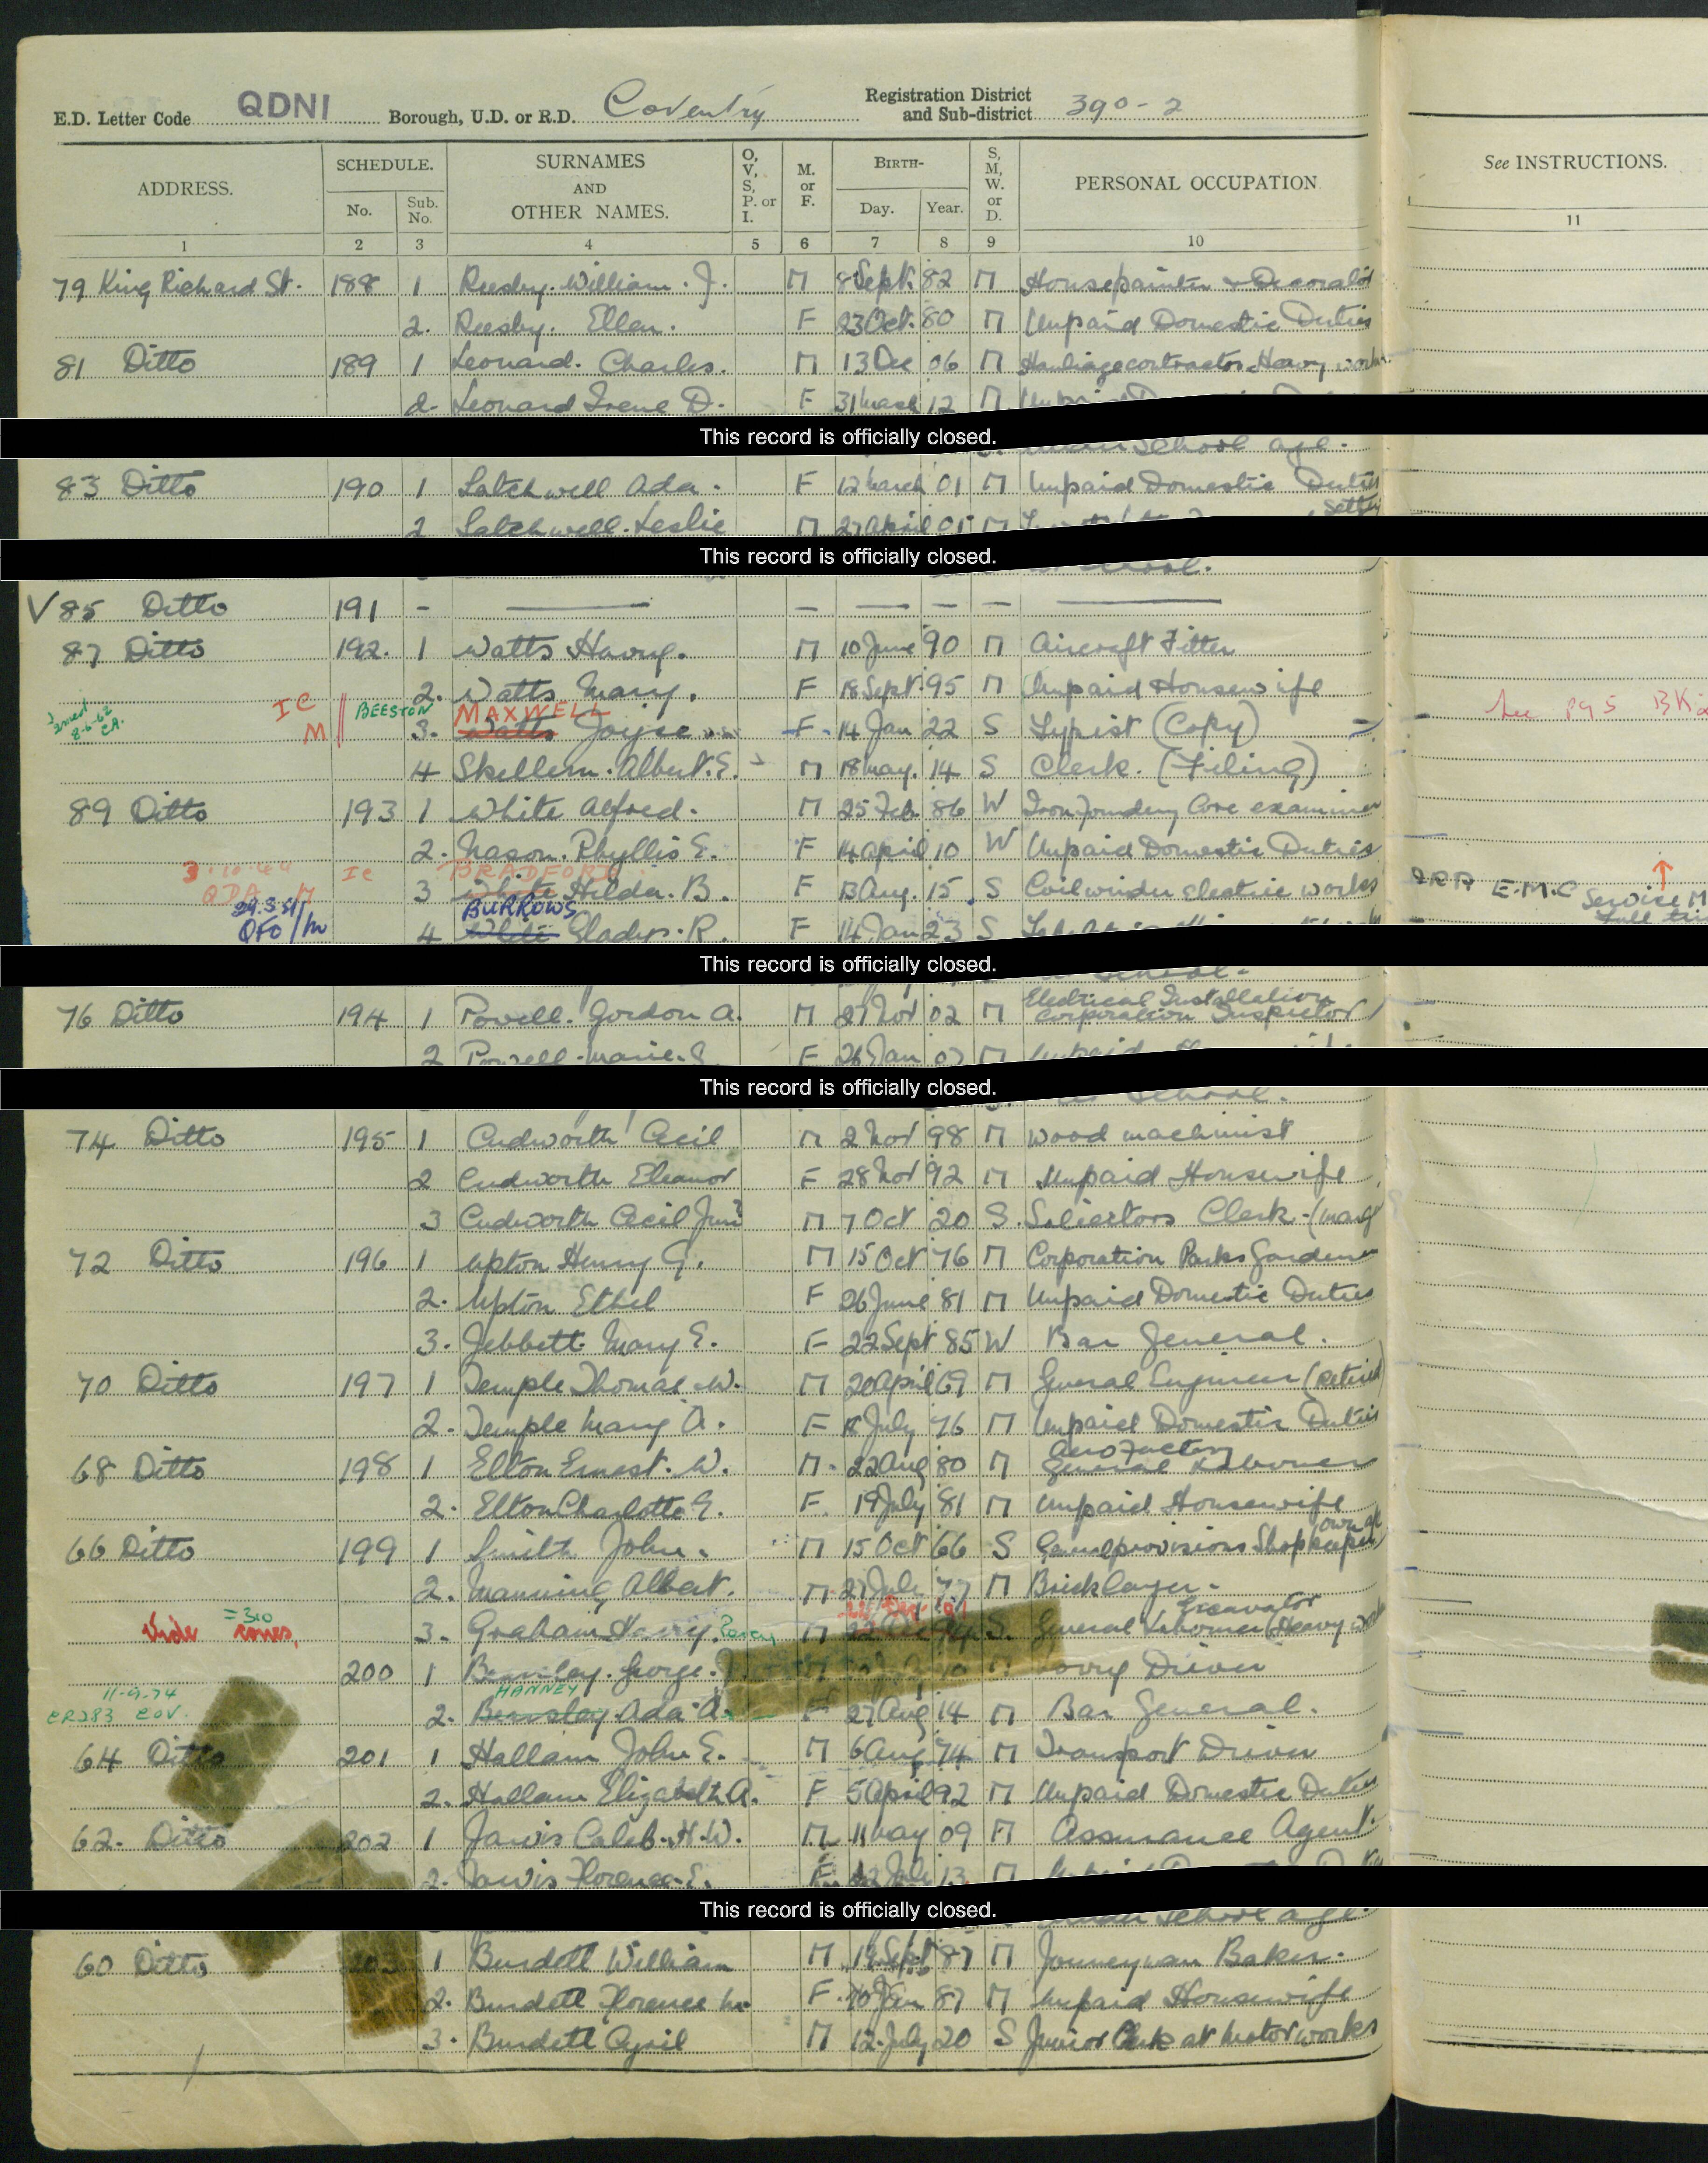 E.D. Letter Code QDNI Borough, U.D. or R.D. Coventry Registration District and Sub-district 390-2
ADDRESS. SCHEDULE. No. Sub. No. SURNAMES AND OTHER NAMES. O, V, S, P. or I. M. or F. BIRTH- Day. Year. S, M, W. or D. PERSONAL OCCUPATION See INSTRUCTIONS.
1 2 3 4 5 6 7 8 9 10 11
79 King Richard St. 188 1 Reesby. William. J. M 8 Sept. 82 M Housepainter & Decorator
2. Reesby. Ellen. F 23 Oct. 80 M Unpaid Domestic Duties
81 Ditto 189 1 Leonard. Charles. M 13 Dec 06 M Haulage contractor Heavy
2. Leonard Irene D. F 31 March 12 M
This record is officially closed.
School age.
83 Ditto 190 1 Satchwell Ada. F 12 March 01 M Unpaid Domestic Duties
2 Satchwell. Leslie M 27 April 05 M Setter
This record is officially closed.
V 85 Ditto 191 - — — — — — —
87 Ditto 192. 1 Watts Harry. M 10 June 90 M Aircraft Fitter
2. Watts Mary. F 18 Sept. 95 M Unpaid Housewife
IC M BEESTON MAXWELL
3. Watts Joyce F 14 Jan 22 S Typist (Copy) See P95 BK2
4 Skellern. Albert. E. M 18 May. 14 S Clerk. (Filing)
89 Ditto 193 1 White Alfred. M 25 Feb. 86 W Iron foundry Core examiner
2. Mason. Phyllis E. F 14 April 10 W Unpaid Domestic Duties
3.10.44 QDA M IC BRADFORD
3 White Hilda. B. F 13 Aug. 15. S Coil winder electric works ARP E.M.C Service
29.3.51 QFO/M BURROWS
4 White Gladys. R. F 14 Jan 23 S
This record is officially closed.
76 Ditto 194 1 Powell. Gordon A. M 27 Nov 02 M Electrical Installation Corporation Inspector
2 Powell. Marie. E. F 26 Jan 07 M Unpaid
This record is officially closed.
School.
74 Ditto 195 1 Cudworth Cecil M 2 Nov 98 M Wood machinist
2 Cudworth Eleanor F 28 Nov 92 M Unpaid Housewife
3 Cudworth Cecil Junr M 7 Oct 20 S. Solicitors Clerk -
72 Ditto 196 1 Upton Henry G. M 15 Oct 76 M Corporation Parks Gardener
2. Upton Ethel F 26 June 81 M Unpaid Domestic Duties
3. Jebbett Mary E. F 22 Sept 85 W Bar General.
70 Ditto 197 1 Temple Thomas W. M 20 April 69 M General Engineer (retired)
2. Temple Mary A. F July 76 M Unpaid Domestic Duties
68 Ditto 198 1 Elton Ernest. W. M. 22 Aug 80 M Aero Factory General Labourer
2. Elton Charlotte E. F. 19 July 81 M Unpaid Housewife
66 Ditto 199 1 Smith John. M 15 Oct 66 S General provisions Shopkeeper own a/c
2. Manning Albert. M 27 July 77 M Bricklayer.
3. Graham Harry. M S. Excavator General Labourer (Heavy
200 1 Beamsley. George. J. M Lorry Driver
11-9-74 CR283 COV. HANNEY
2. Beamsley Ada A. F 27 Aug 14 M Bar General.
64 Ditto 201 1 Hallam John E. M 6 Aug 74 M Transport Driver
2. Hallam Elizabeth A. F 5 April 92 M Unpaid Domestic Duties
62. Ditto 202 1 Jarvis Caleb. H. W. M 11 May 09 M Assurance Agent.
2. Jarvis Florence. E. F 22 July 13 M
This record is officially closed.
under School age.
60 Ditto 203 1 Burdett William M 14 Sept 87 M Journeyman Baker.
2. Burdett Florence M. F 10 Jan 87 M Unpaid Housewife
3. Burdett Cyril M 12 July 20 S Junior Clerk at Motor works